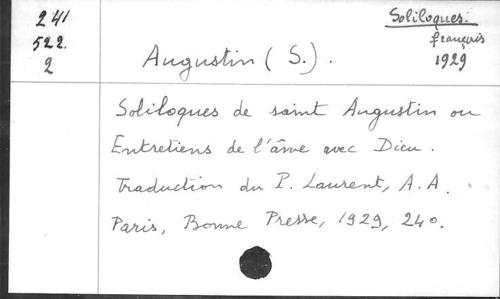 241
522.
2
Soliloques.
français
1929
Augustin (S.).
Soliloques de saint Augustin ou
Entretiens de l'âme avec Dieu.
Traduction du P. Laurent, A.A.
Paris, Bonne Presse, 1929, 240.